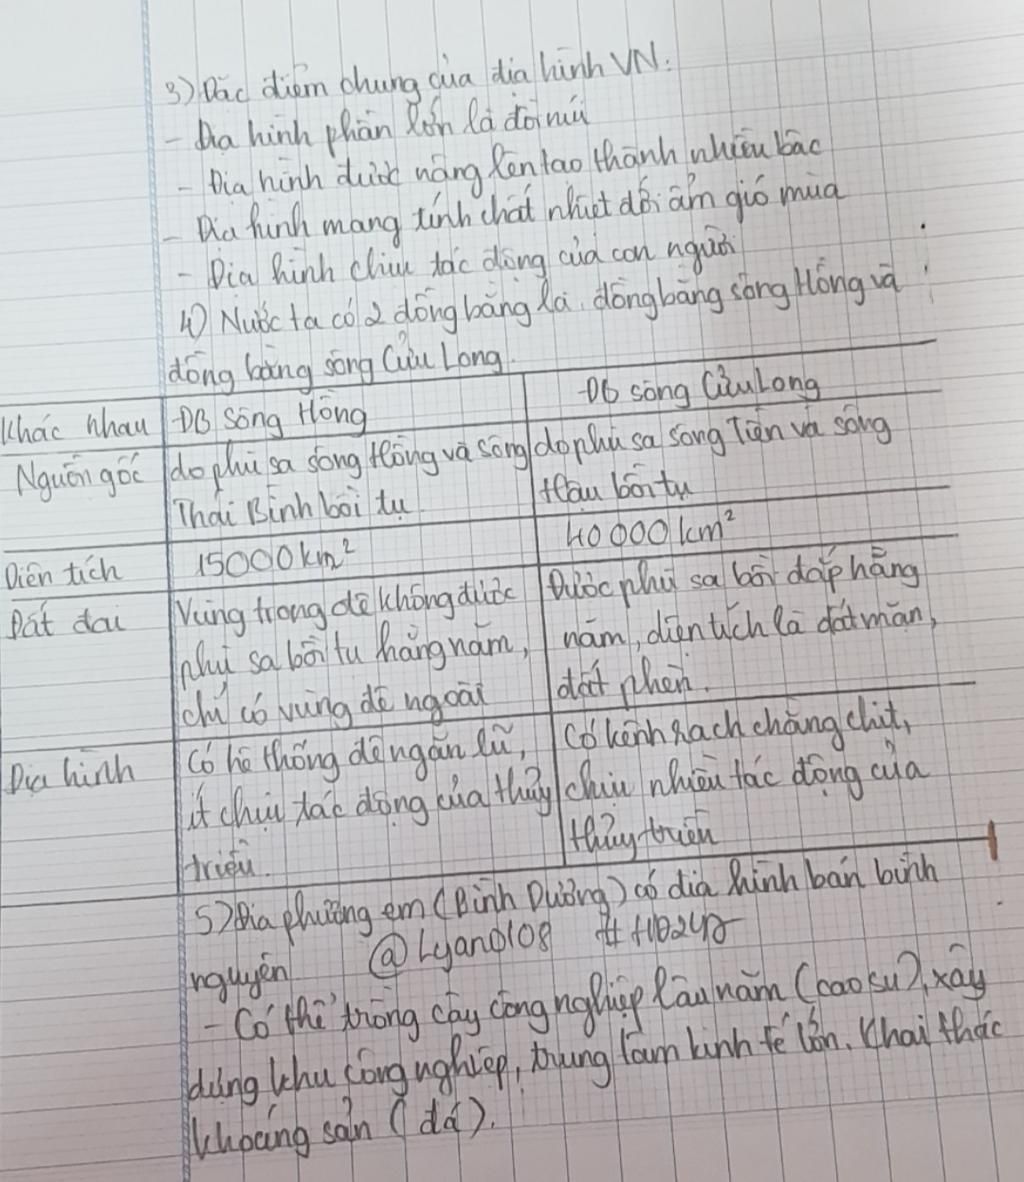 3) Đặc điểm chung của địa hình VN:
- Địa hình phần lớn là đồi núi
- Địa hình được nâng lên tạo thành nhiều bậc
- Địa hình mang tính chất nhiệt đới ẩm gió mùa
- Địa hình chịu tác động của con người
4) Nước ta có 2 đồng bằng là đồng bằng sông Hồng và
đồng bằng sông Cửu Long.
Khác nhau | ĐB Sông Hồng | ĐB sông Cửu Long
Nguồn gốc | do phù sa sông Hồng và sông | do phù sa sông Tiền và sông
Thái Bình bồi tụ | Hậu bồi tụ
Diện tích | 15000 km² | 40 000 km²
Đất đai | Vùng trong đê không được | Được phù sa bồi đắp hằng
phù sa bồi tụ hằng năm, | năm, diện tích là đất mặn,
chỉ có vùng đê ngoài | đất phèn.
Địa hình | Có hệ thống đê ngăn lũ, | Có kênh rạch chằng chịt,
ít chịu tác động của thủy | chịu nhiều tác động của
triều. | thủy triều
5) Địa phương em (Bình Dương) có địa hình bán bình
nguyên @Lyano108 # HD247
- Có thể trồng cây công nghiệp lâu năm (cao su), xây
dựng khu công nghiệp, trung tâm kinh tế lớn. Khai thác
khoáng sản (đá).